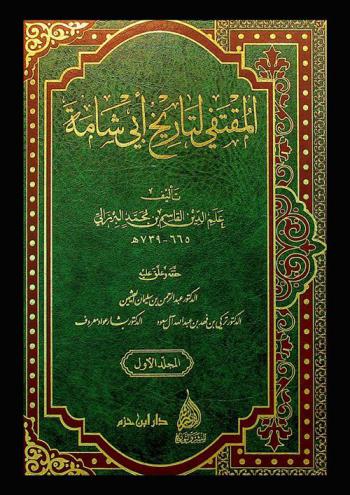 المقتفي لتاريخ أبي شامة
تأليف
علم الدين القاسم بن محمد البرزالي
٦٦٥ - ٧٣٩ هـ
حققه وعلق عليه
الدكتور عبد الرحمن بن سليمان العثيمين
الدكتور تركي بن فهد بن عبد الله آل سعود الدكتور بشار عواد معروف
المجلد الأول
دار ابن حزم